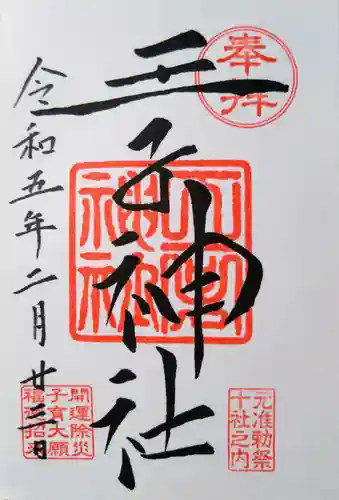 奉拝
王子神社
令和五年二月廿三日
王子神社
元准勅祭
十社之内
開運除災
子育大願
福徳招来